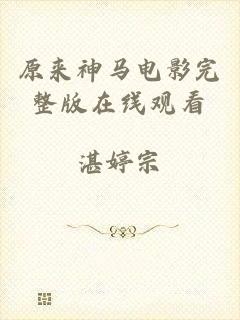 原来神马电影完
整版在线观看
湛婷宗